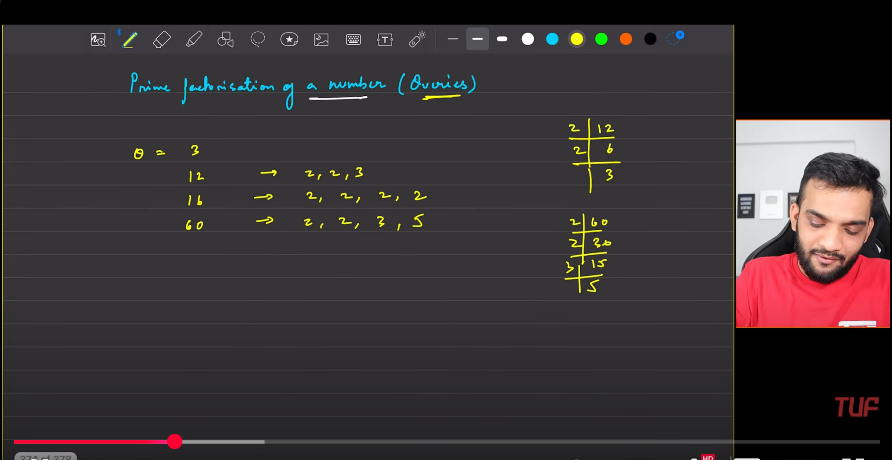 Prime factorisation of a number (Queries)
Q = 3
12 → 2, 2, 3
16 → 2, 2, 2, 2
60 → 2, 2, 3, 5
2 | 12
2 | 6
| 3
2 | 60
2 | 30
3 | 15
| 5
TUF
HD